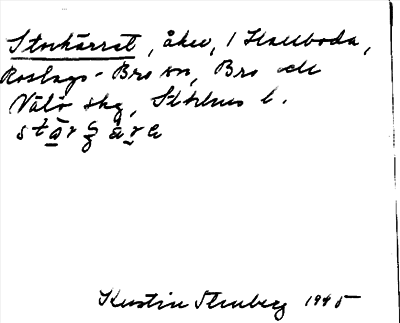 Storkärret, åker, 1 Hallboda,
Roslags-Bro sn, Bro och
Väto skg, Sthlms l.
Kerstin Stenberg 1945